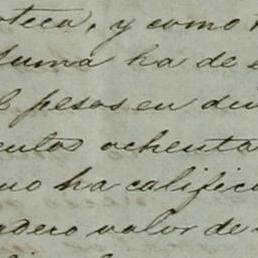 oteca, y como
suma ha de
pesos en din
entos ochenta
no ha calific
dero valor de